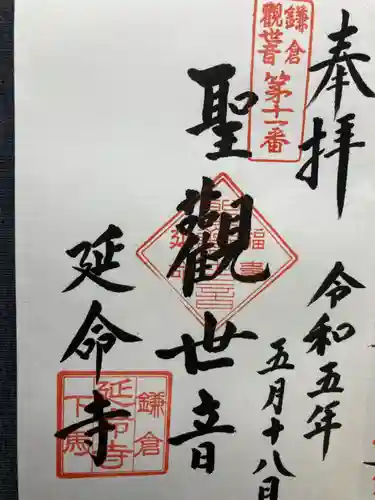 奉拝
令和五年
五月十八日
鎌倉
観世音
第十一番
聖觀世音
延命寺
鎌倉
延命寺
下馬